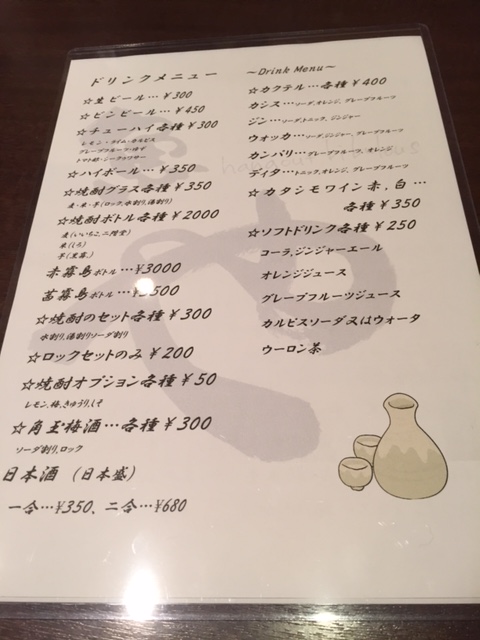 ドリンクメニュー
☆生ビール…¥300
☆ビンビール…¥450
☆チューハイ各種¥300
レモン・ライム・カルピス
グレープフルーツ・ゆず
トマト酎・シークワサー
☆ハイボール…¥350
☆焼酎グラス各種¥350
麦・米・芋(ロック,水割り,湯割り)
☆焼酎ボトル各種¥2000
麦(いいちこ,二階堂)
米(しろ)
芋(黒霧)
赤霧島ボトル…¥3000
茜霧島ボトル…¥3500
☆焼酎のセット各種¥300
水割り,湯割りソーダ割り
☆ロックセットのみ¥200
☆焼酎オプション各種¥50
レモン,梅,きゅうり,しそ
☆角玉梅酒…各種¥300
ソーダ割り,ロック
日本酒(日本盛)
一合…¥350、二合…¥680
~Drink Menu~
☆カクテル…各種¥400
カシス…ソーダ,オレンジ,グレープフルーツ
ジン…ソーダ,トニック,ジンジャー
ウォッカ…ソーダ,ジンジャー,グレープフルーツ
カンパリ…グレープフルーツ,オレンジ
ディタ…トニック,オレンジ,グレープフルーツ
☆カタシモワイン赤,白…
各種¥350
☆ソフトドリンク各種¥250
コーラ,ジンジャーエール
オレンジジュース
グレープフルーツジュース
カルピスソーダ又はウォータ
ウーロン茶